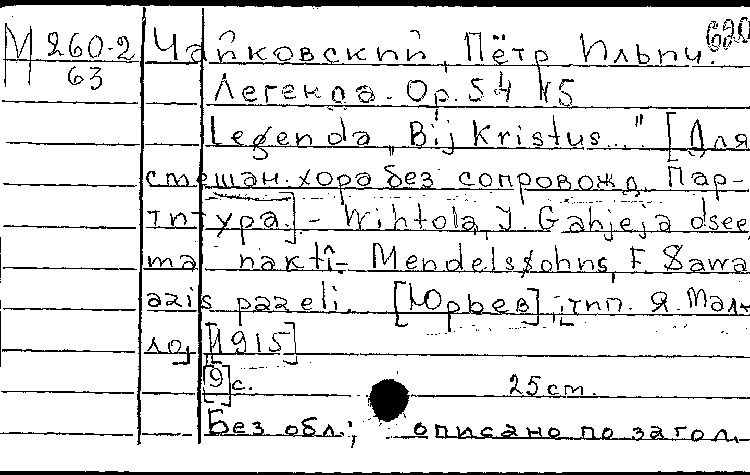 620
М 260-2
63
Чайковский, Пётр Ильич.
Легенда. Op. 54 №5
Legenda „Bij Kristus..." [Для
смешан. хора без сопровожд. Пар-
титура.] – Wihtola, J. Gahjeja dsee,
ma naktî – Mendelssohns, F. Sawa
azis pazeli. [Юрьев], тип. Я. Мал-
ло, [1915]
[9] с. 25 cm.
Без обл.; описано по загол.